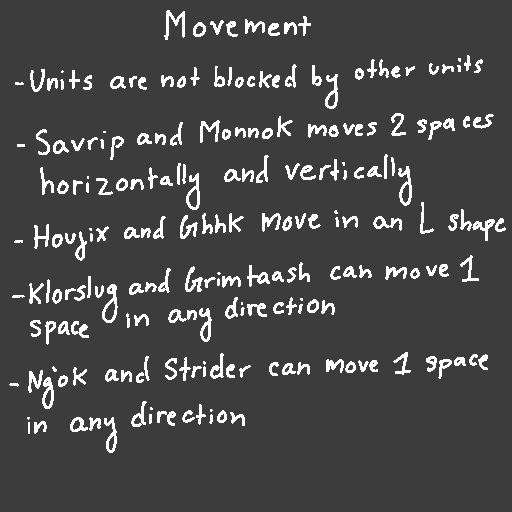 Movement
-Units are not blocked by other units
- Savrip and Monnok moves 2 spaces
horizontally and vertically
- Houjix and Ghhhk move in an L shape
-Klorslug and Grimtaash can move 1
space in any direction
- Ng'ok and Strider can move 1 space
in any direction